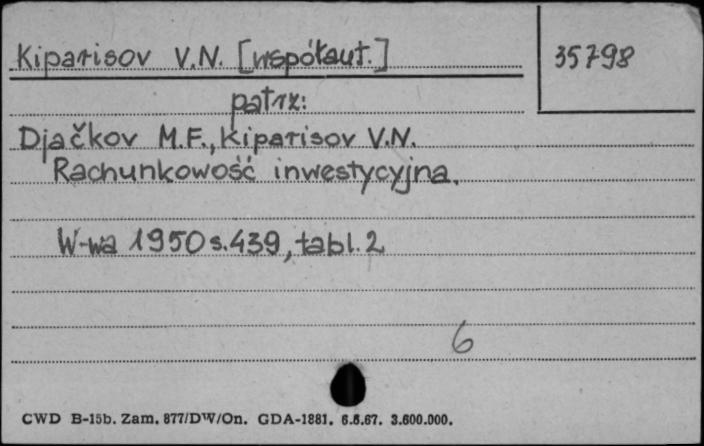 Kiparisov V.N. [współaut.]
35798
patrz:
Djačkov M.F., Kiparisov V.N.
Rachunkowość inwestycyjna.
W-wa 1950 s.439, tabl.2
6
CWD B-15b. Zam. 877/DW/On. GDA-1881. 6.6.67. 3.600.000.